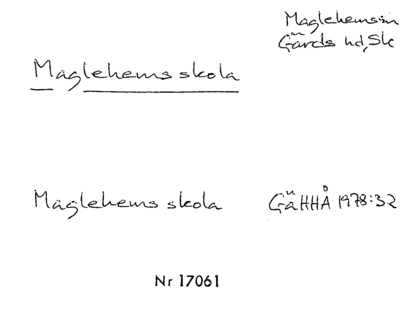 Maglehems sn
Gärds hd, Sk
Maglehems skola
Maglehems skola GäHHÅ 1978:32
Nr 17061